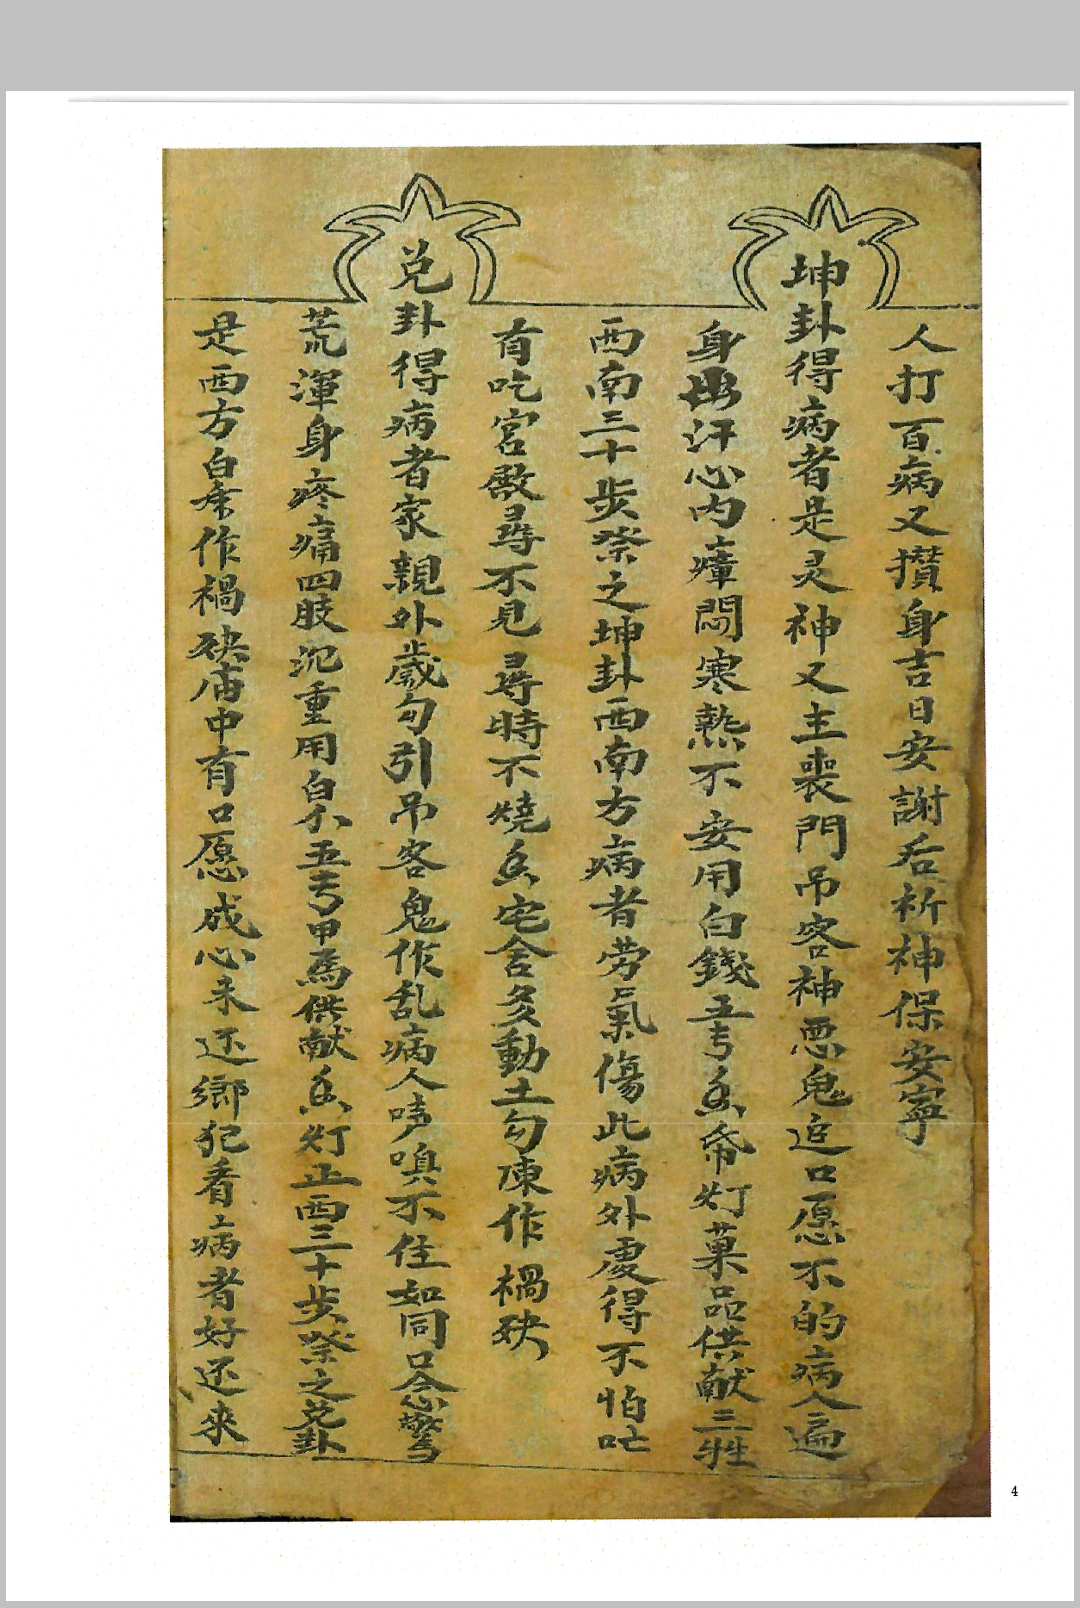 人打百病又攅身吉日安謝后祈神保安寧
坤卦得病者是灵神又主喪門吊客神悪鬼迋口愿不的病人遍
身出汗心内瘴悶寒熱不安用白錢五号香帋灯菓品供献三牲
西南三十步祭之坤卦西南方病者劳氣傷此病外處得不怕吂
有吃宮殿尋不見尋時不燒香宅舍多動土勾陳作禍殃
兑卦得病者家親外歲勾引吊客鬼作乱病人哮嗅不住如同口念驚
荒渾身疼痛四肢沉重用白仒五号甲馬供献香灯正西三十步祭之兑卦
是西方白虎作禍殃庙中有口愿成心未还鄉犯看病者好还來
4